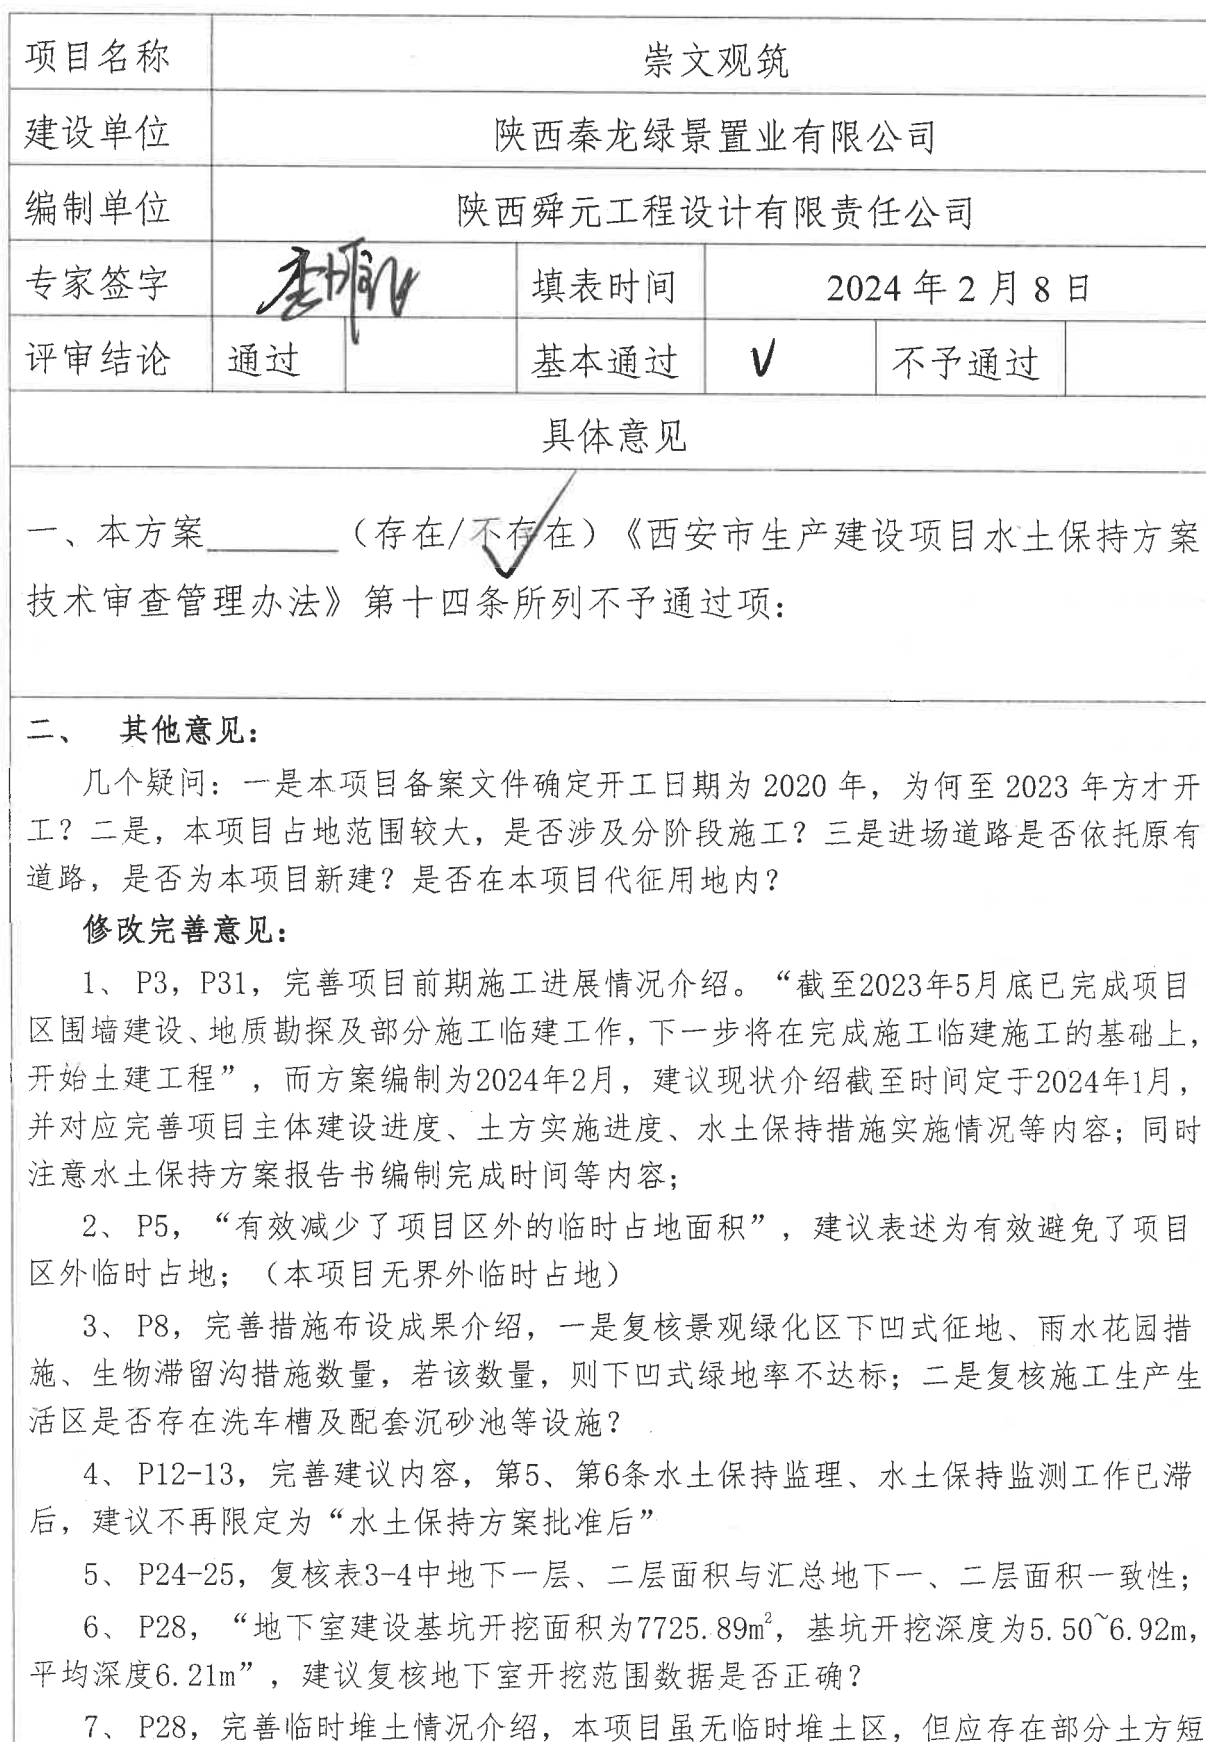 项目名称 崇文观筑
建设单位 陕西秦龙绿景置业有限公司
编制单位 陕西舜元工程设计有限责任公司
专家签字 填表时间 2024年2月8日
评审结论 通过 基本通过 √ 不予通过
具体意见
一、本方案______（存在/不存在）《西安市生产建设项目水土保持方案
技术审查管理办法》第十四条所列不予通过项：
二、 其他意见：
几个疑问：一是本项目备案文件确定开工日期为 2020 年，为何至 2023 年方才开
工？二是，本项目占地范围较大，是否涉及分阶段施工？三是进场道路是否依托原有
道路，是否为本项目新建？是否在本项目代征用地内？
修改完善意见：
1、 P3，P31，完善项目前期施工进展情况介绍。“截至2023年5月底已完成项目
区围墙建设、地质勘探及部分施工临建工作，下一步将在完成施工临建施工的基础上，
开始土建工程”，而方案编制为2024年2月，建议现状介绍截至时间定于2024年1月，
并对应完善项目主体建设进度、土方实施进度、水土保持措施实施情况等内容；同时
注意水土保持方案报告书编制完成时间等内容；
2、 P5，“有效减少了项目区外的临时占地面积”，建议表述为有效避免了项目
区外临时占地；（本项目无界外临时占地）
3、 P8，完善措施布设成果介绍，一是复核景观绿化区下凹式征地、雨水花园措
施、生物滞留沟措施数量，若该数量，则下凹式绿地率不达标；二是复核施工生产生
活区是否存在洗车槽及配套沉砂池等设施？
4、 P12-13，完善建议内容，第5、第6条水土保持监理、水土保持监测工作已滞
后，建议不再限定为“水土保持方案批准后”
5、 P24-25，复核表3-4中地下一层、二层面积与汇总地下一、二层面积一致性；
6、 P28，“地下室建设基坑开挖面积为7725.89m²，基坑开挖深度为5.50~6.92m，
平均深度6.21m”，建议复核地下室开挖范围数据是否正确？
7、 P28，完善临时堆土情况介绍，本项目虽无临时堆土区，但应存在部分土方短